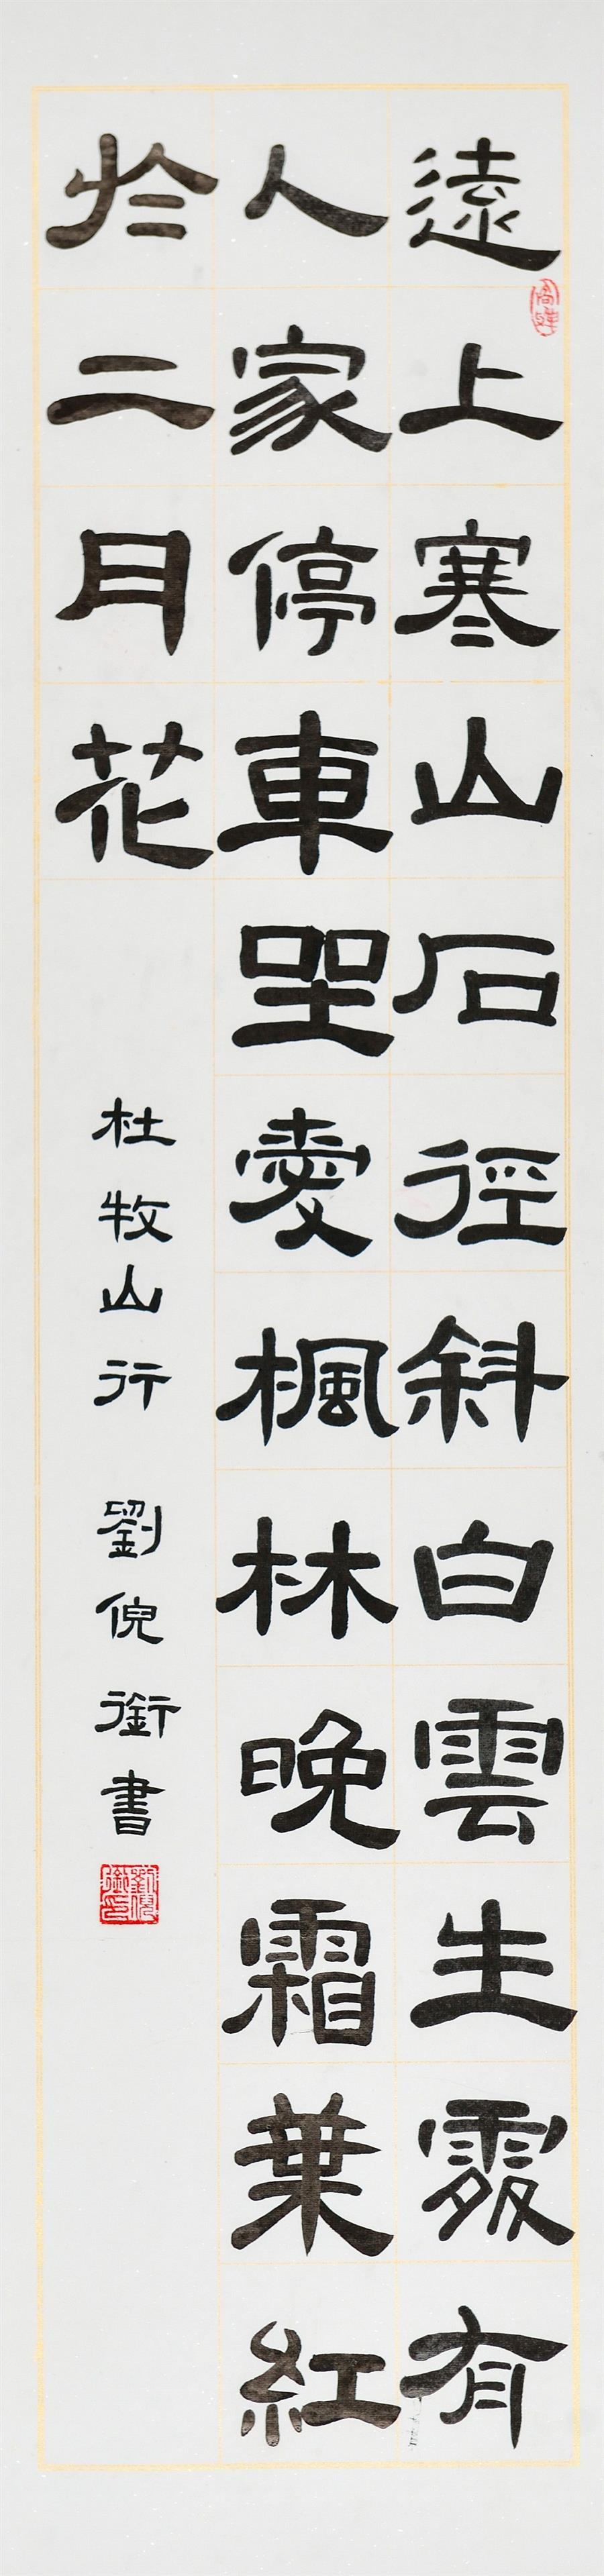 遠上寒山石徑斜白雲生處有
人家停車坐愛楓林晚霜葉紅
於二月花
杜牧山行 劉倪銜書
劉倪銜印